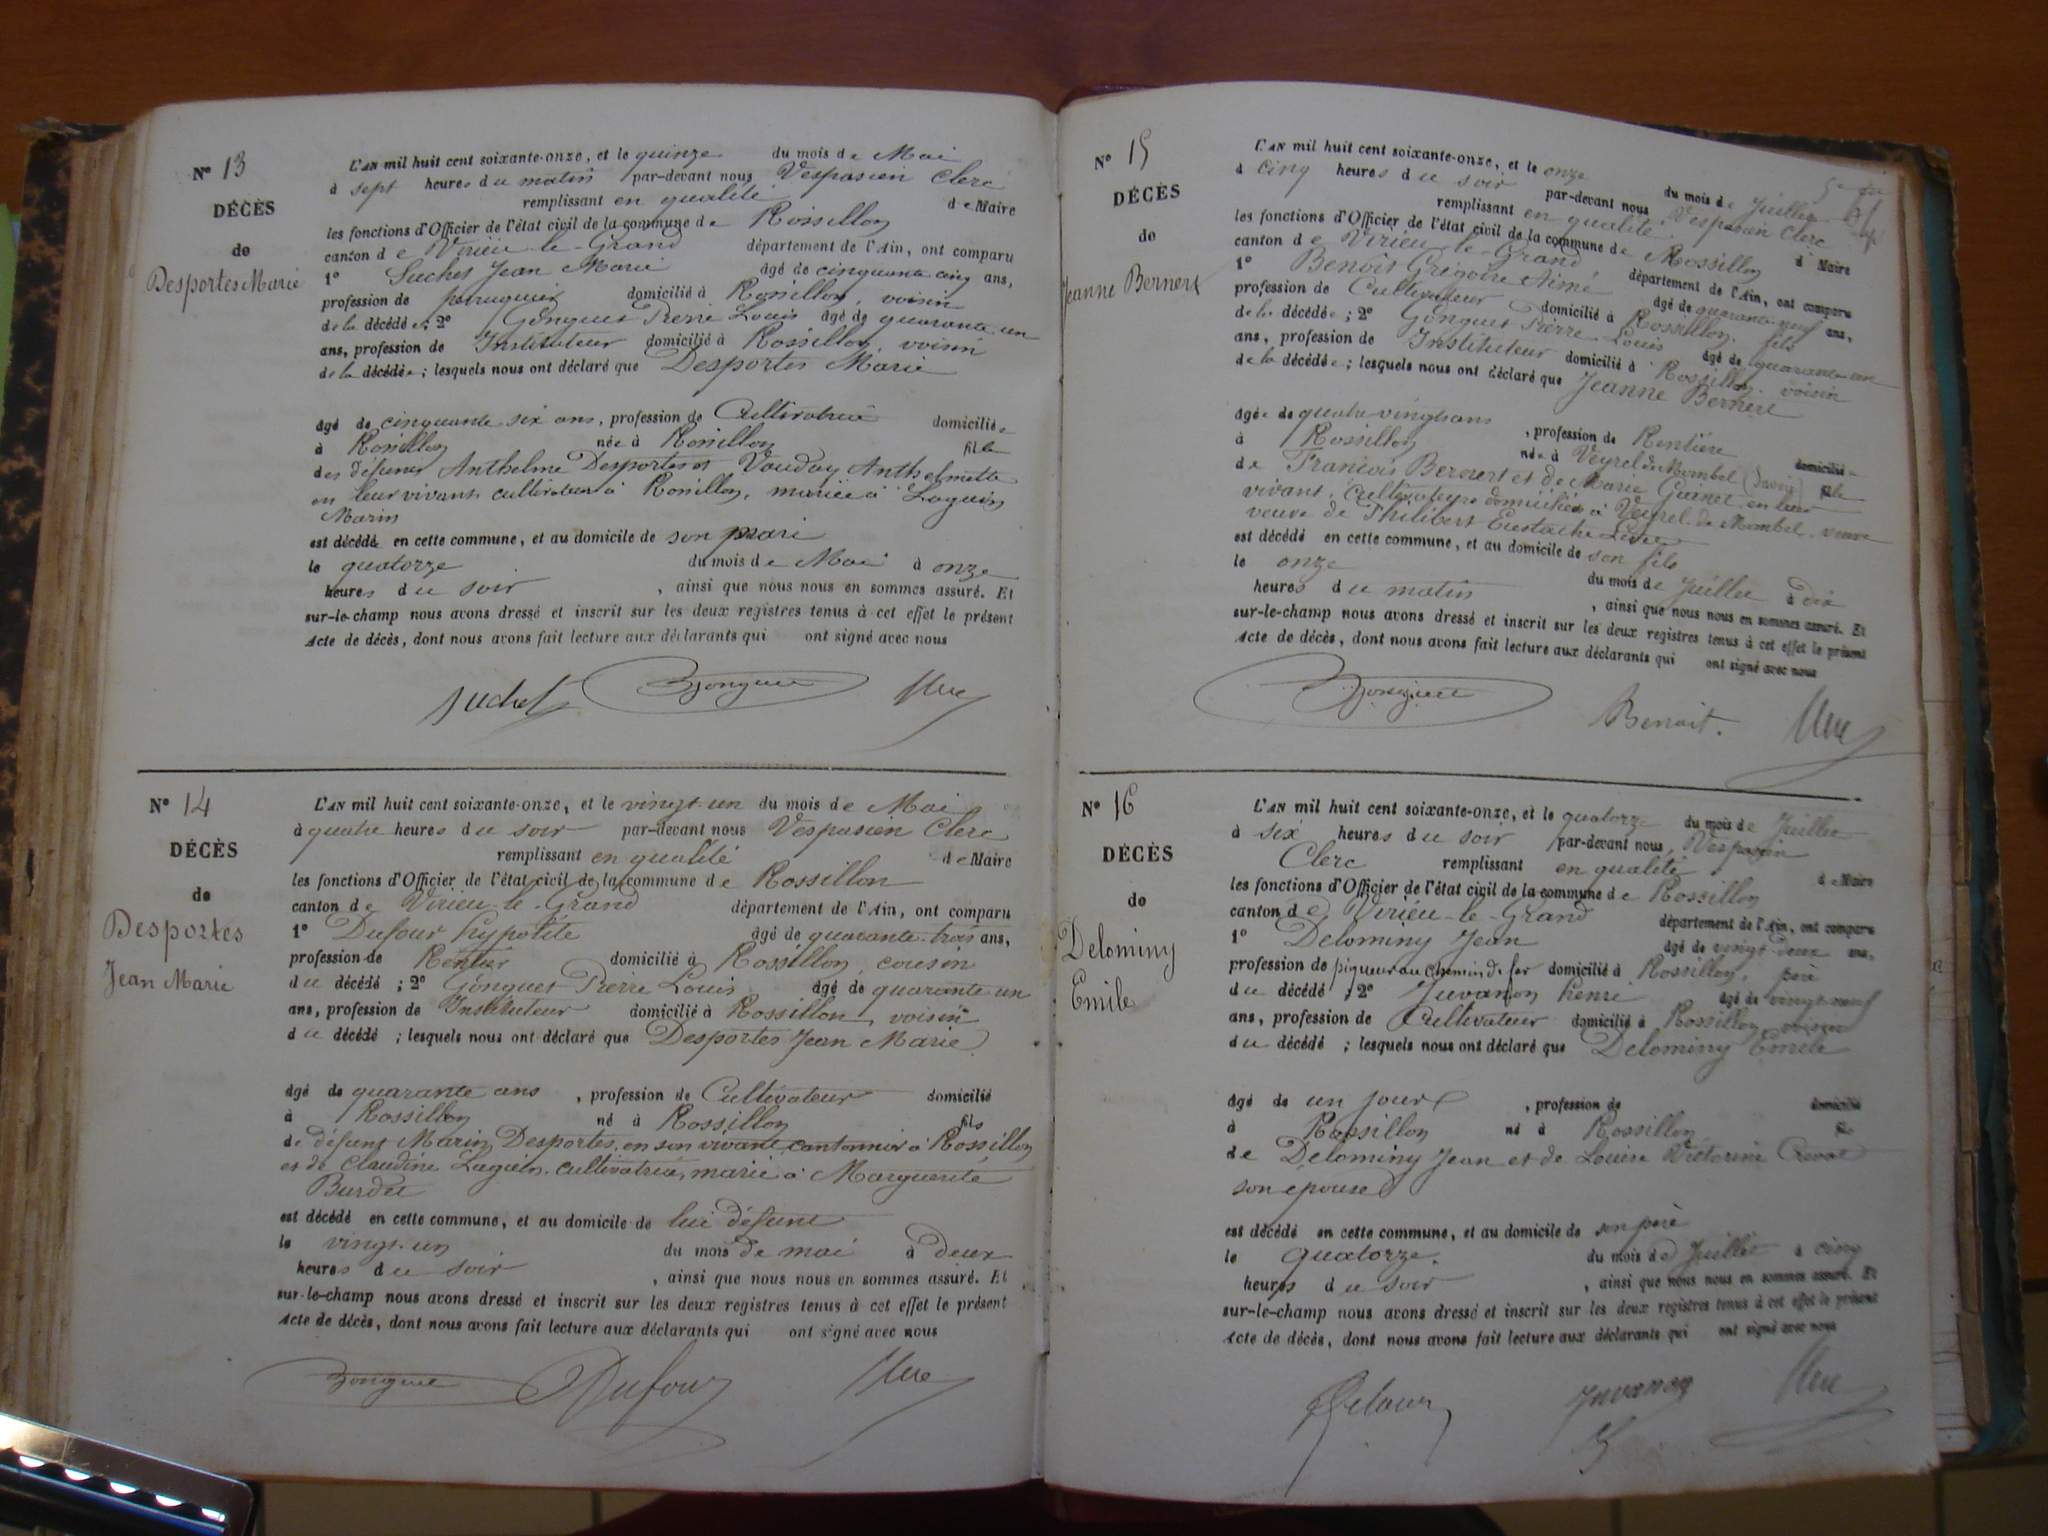 Nº 13
DÉCÈS
de
Desportes Marie
L'AN mil huit cent soixante-onze, et le quinze du mois de Mai
à sept heures du matin par-devant nous Vespasien Clerc
remplissant en qualité de Maire
les fonctions d'Officier de l'état civil de la commune de Rossillon
canton de Virieu-le-Grand département de l'Ain, ont comparu
1º Suchet Jean Marie âgé de cinquante cinq ans,
profession de perruquier domicilié à Rossillon, voisin
de la décédée; 2º Gonguet Pierre Louis âgé de quarante un
ans, profession de Instituteur domicilié à Rossillon, voisin
de la décédée; lesquels nous ont déclaré que Desportes Marie
âgé de cinquante six ans, profession de Cultivatrice domiciliée
à Rossillon née à Rossillon fille
des défunts Anthelme Desportes et Vauday Anthelmette
en leur vivant cultivateurs à Rossillon, mariée à Laguin
Marin
est décédé en cette commune, et au domicile de son mari
le quatorze du mois de Mai à onze
heures du soir, ainsi que nous nous en sommes assuré. Et
sur-le-champ nous avons dressé et inscrit sur les deux registres tenus à cet effet le présent
Acte de décès, dont nous avons fait lecture aux déclarants qui ont signé avec nous
Suchet Gonguet Clerc
Nº 14
DÉCÈS
de
Desportes
Jean Marie
L'AN mil huit cent soixante-onze, et le vingt-un du mois de Mai
à quatre heures du soir par-devant nous Vespasien Clerc
remplissant en qualité de Maire
les fonctions d'Officier de l'état civil de la commune de Rossillon
canton de Virieu-le-Grand département de l'Ain, ont comparu
1º Dufour hypolite âgé de quarante-trois ans,
profession de Rentier domicilié à Rossillon, cousin
du décédé; 2º Gonguet Pierre Louis âgé de quarante un
ans, profession de Instituteur domicilié à Rossillon, voisin
du décédé; lesquels nous ont déclaré que Desportes Jean Marie
âgé de quarante ans, profession de Cultivateur domicilié
à Rossillon né à Rossillon fils
de défunt Marin Desportes, en son vivant cantonnier à Rossillon
et de Claudine Laguin, cultivatrice, marié à Marguerite
Burdet
est décédé en cette commune, et au domicile de lui défunt
le vingt-un du mois de mai à deux
heures du soir, ainsi que nous nous en sommes assuré. Et
sur-le-champ nous avons dressé et inscrit sur les deux registres tenus à cet effet le présent
Acte de décès, dont nous avons fait lecture aux déclarants qui ont signé avec nous
Gonguet Dufour Clerc
Nº 15
DÉCÈS
de
Jeanne Bernert
L'AN mil huit cent soixante-onze, et le onze du mois de Juillet
à cinq heures du soir par-devant nous Vespasien Clerc
remplissant en qualité d Maire
les fonctions d'Officier de l'état civil de la commune de Rossillon
canton de Virieu-le-Grand département de l'Ain, ont comparu
1º Benoit Grégoire Aimé âgé de quarante-neuf ans,
profession de Cultivateur domicilié à Rossillon, fils
de la décédée; 2º Gonguet Pierre Louis âgé de quarante-un
ans, profession de Instituteur domicilié à Rossillon, voisin
de la décédée; lesquels nous ont déclaré que Jeanne Bernert
âgée de quatre-vingts ans, profession de Rentière domicilié
à Rossillon née à Veyrel de Mombel fille
de François Bernert et de Marie Guinet en leur
vivant, Cultivateurs domiciliés à Veyrel de Mombel, veuve
veuve de Philibert Eustache
est décédé en cette commune, et au domicile de son fils
le onze du mois de Juillet à dix
heures du matin, ainsi que nous nous en sommes assuré. Et
sur-le-champ nous avons dressé et inscrit sur les deux registres tenus à cet effet le présent
Acte de décès, dont nous avons fait lecture aux déclarants qui ont signé avec nous
Gonguet Benoit. Clerc
Nº 16
DÉCÈS
de
Delominy
Emile
L'AN mil huit cent soixante-onze, et le quatorze du mois de Juillet
à six heures du soir par-devant nous, Vespasien
Clerc remplissant en qualité de Maire
les fonctions d'Officier de l'état civil de la commune de Rossillon
canton de Virieu-le-Grand département de l'Ain, ont comparu
1º Delominy Jean âgé de vingt-deux ans,
profession de piqueur au chemin de fer domicilié à Rossillon, père
du décédé; 2º Juvanon henri âgé de vingt-neuf
ans, profession de Cultivateur domicilié à Rossillon voisin
du décédé; lesquels nous ont déclaré que Delominy Emile
âgé de un jour, profession de domicilié
à Rossillon né à Rossillon fils
de Delominy Jean et de Louise Victorine
son épouse
est décédé en cette commune, et au domicile de son père
le quatorze. du mois de Juillet à cinq
heures du soir, ainsi que nous nous en sommes assuré. Et
sur-le-champ nous avons dressé et inscrit sur les deux registres tenus à cet effet le présent
Acte de décès, dont nous avons fait lecture aux déclarants qui ont signé avec nous
Juvanon Clerc